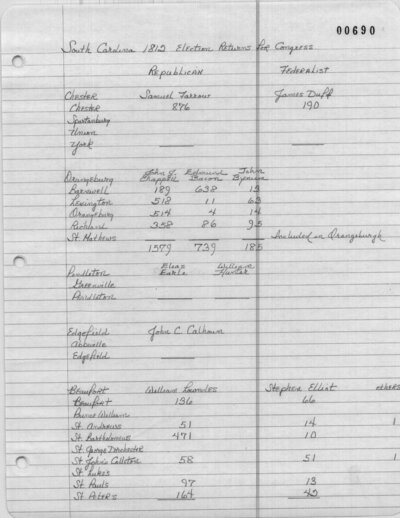 00690
South Carolina 1812 Election Returns for Congress
Republican Federalist
Chester Samuel Farrow James Duff
Chester 876 190
Spartanburg
Union
York
Orangeburg John J. Chappell Edmund Bacon John Bynum
Barnwell 189 638 13
Lexington 518 11 63
Orangeburg 514 4 14
Richland 358 86 95
St. Mathews Included in Orangeburgh
1579 739 185
Pendleton Elias Earle William Hunter
Greenville
Pendleton
Edgefield John C. Calhoun
Abbeville
Edgefield
Beaufort William Lowndes Stephen Elliot others
Beaufort 136 66
Prince William
St. Andrews 51 14 1
St. Bartholomews 471 10
St. George Dorchester
St. John's Colleton 58 51 1
St. Lukes
St. Pauls 97 13
St. Peters 164 42